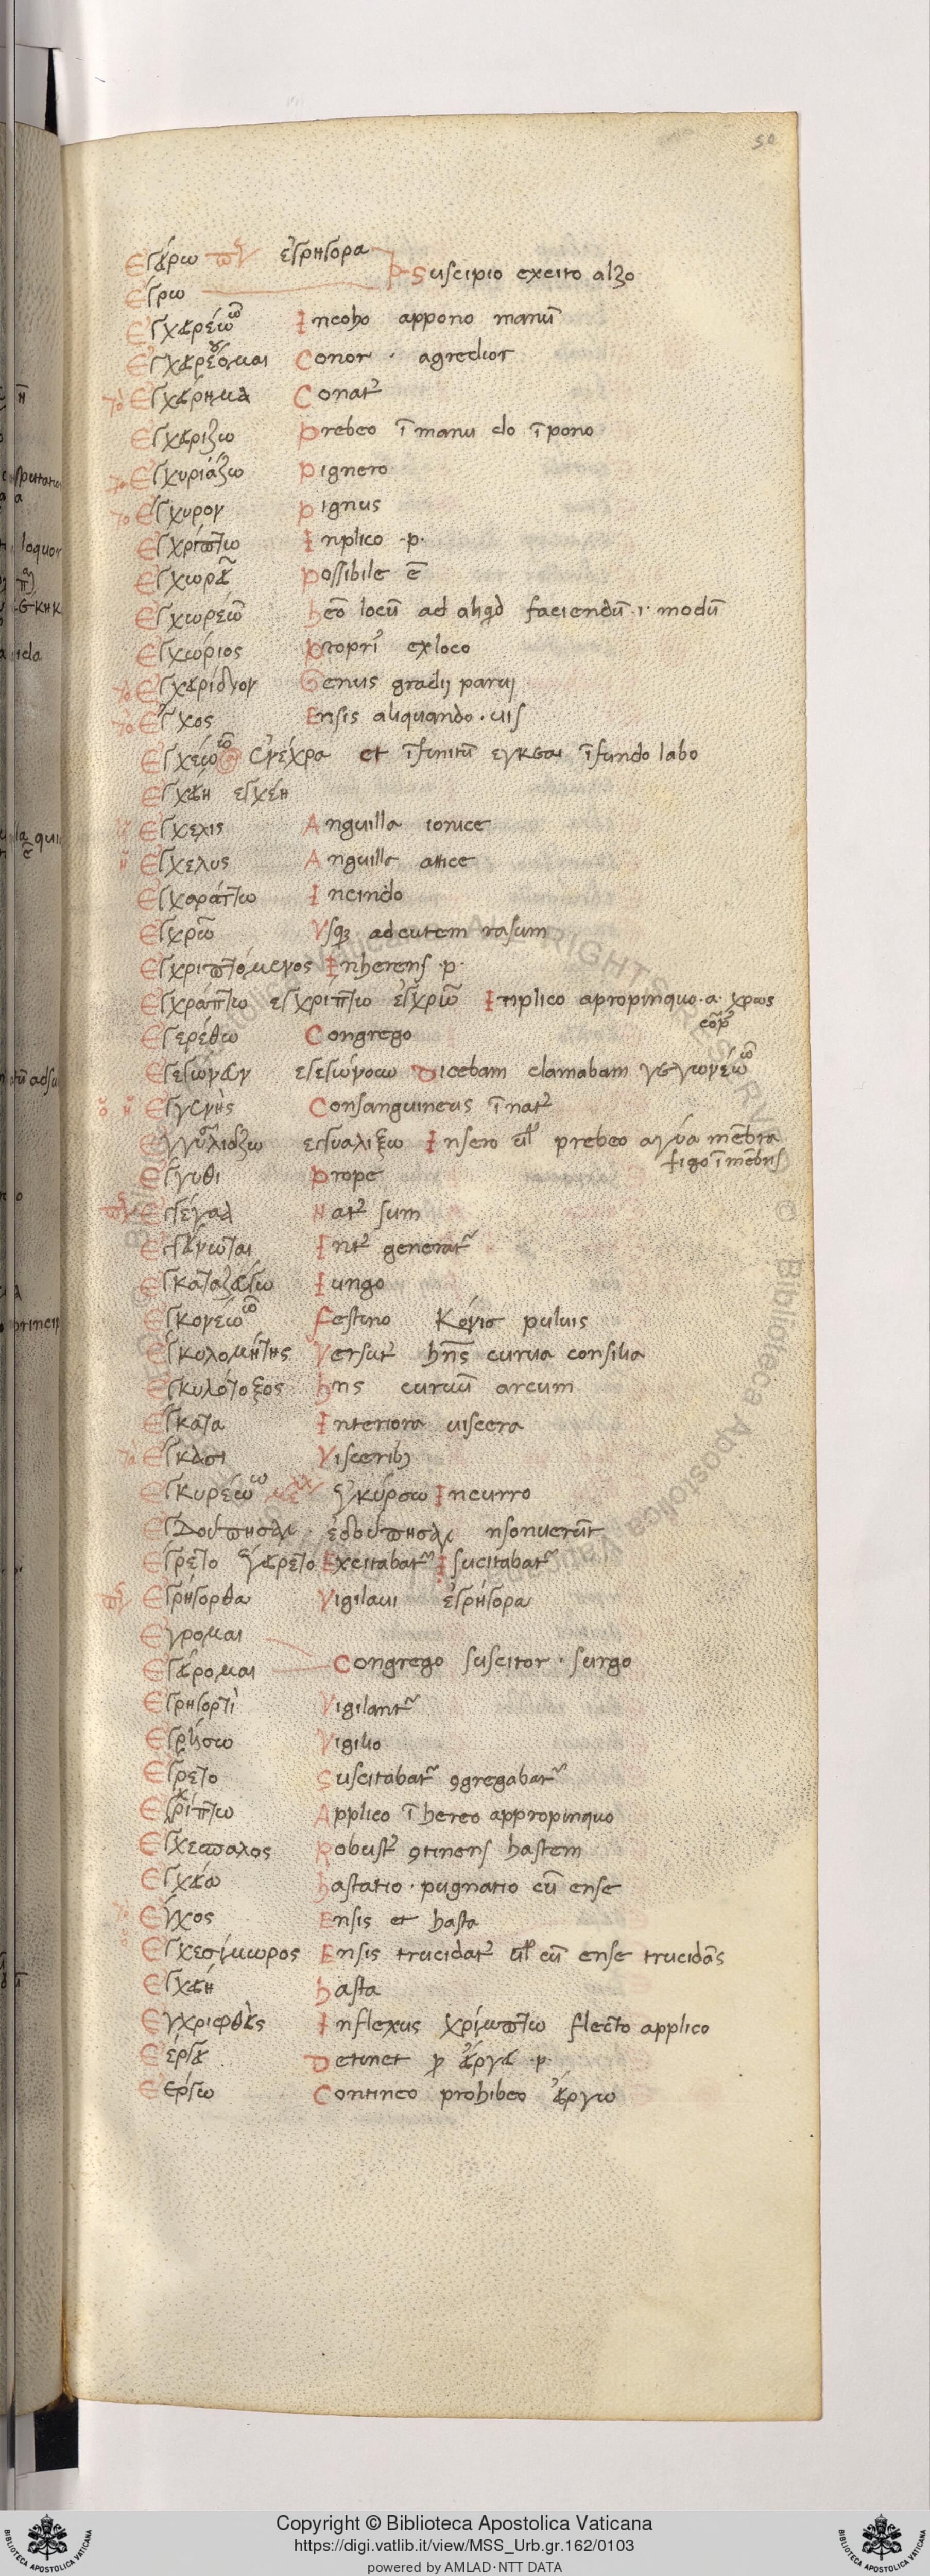 50
Εγείρω εγρήγορα
Suscipio excito alzo
Εγρω
Εγχειρέω Incoho appono manū
Εγχειρέομαι Conor · agredior
Εγχείρημα Conat᾿
Εγχειρίζω Prebeo ī manu do ī pono
Εγχυριάζω Pignero
Εγχυρον Pignus
Εγχρίπτω Inplico ·p·
Εγχωρεῖ Possibile ē
Εγχωρέω heo locū ad faciendū ·i· modū
Εγχώριος Propri᾿ ex loco
Εγχειρίδιον Genus gradij parui
Εγχος Ensis aliquando · uis
Εγχέω et ī finitū ī fundo labo
Εγχείη εγχέη
Εγχελις Anguilla ionice
Εγχελυς Anguilla attice
Εγχαράττω Incindo
Εγχρῶ Vsq3 ad cutem rasum
Εγχριπτόμενος Inherens ·p·
Εγχράπτω εγχρίπτω εγχρῶ Inplico apropinquo ·a· χρως
Εγερέθω Congrego
Εγεγώνειν Dicebam clamabam γεγωνέω
Εγγενὴς Consanguineus ī nat᾿
Εγγυαλίζω εγγυαλίξω Insero ul᾿ prebeo mēbra
figo ī mēbris
Εγγυθι Prope
Εγέγαα Nat᾿ sum
Int᾿ generat᾿
Iungo
Εγκονέω Festino Κόνισ puluis
Εγκυλομήτης Versut᾿ hn̄s curua consilia
Εγκυλότοξος hns curuū arcum
Εγκατα Interiora uiscera
Εγκασι Viscerib3
Εγκυρέω εγκύρσω Incurro
Εγδούπησαν εδούπησαν nsonuerūt
Εγρετο ηγείρετο Excitabat᾿ Isucitabat᾿
Εγρήγορθα Vigilaui εγρήγορα
Εγρομαι
Εγείρομαι Congrego suscitor · surgo
Εγρηγορτὶ Vigilant᾿
Εγρήσσω Vigilio
Εγρετο Suscitabat᾿ 9gregabat᾿
Εγχρίπτω Applico ī hereo appropinquo
Εγχεσπαλος Robust᾿ 9tinens hastem
Εγχεία hastatio · pugnatio cū ense
Εγχος Ensis et hasta
Εγχεσίμωρος Ensis trucidat᾿ ul᾿ cū ense trucidās
Εγχείη hasta
Εγχριφθεὶς Inflexus χρίμπτω flecto applico
Εέργει Detinet p είργει ·p·
Εέργω Contineo prohibeo είργω
Copyright © Biblioteca Apostolica Vaticana
https://digi.vatlib.it/view/MSS_Urb.gr.162/0103
powered by AMLAD·NTT DATA